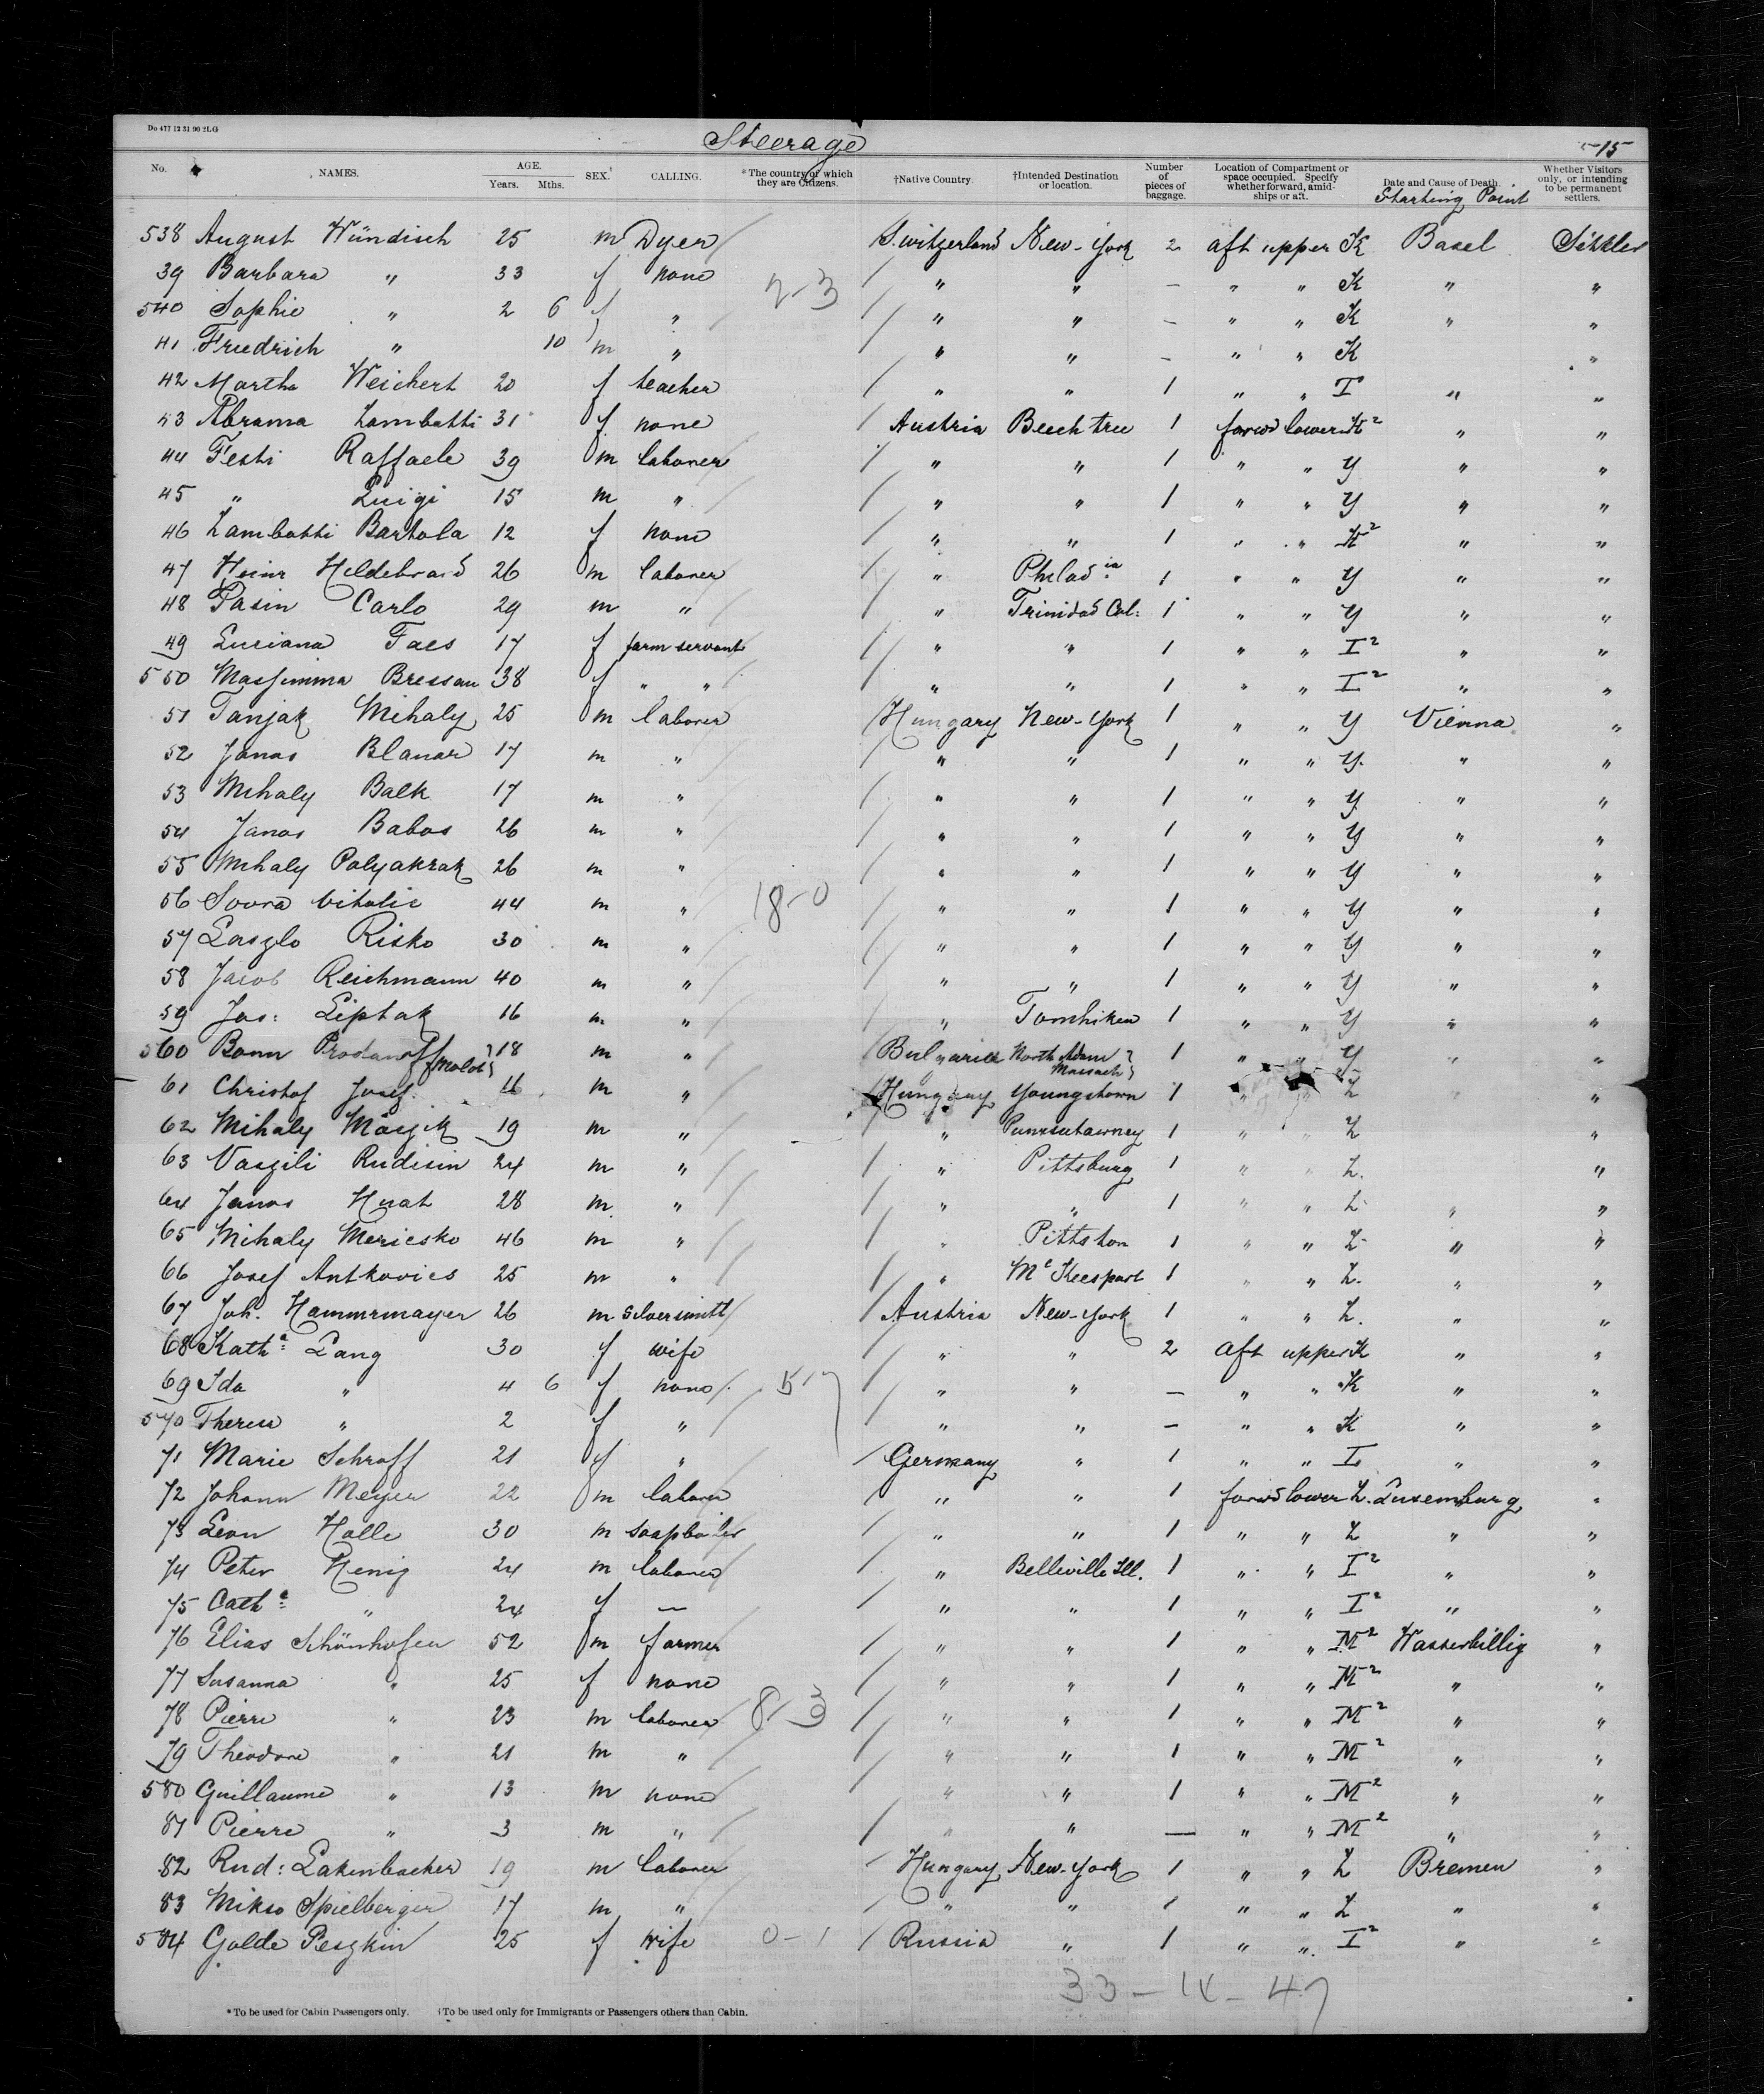 Do 477 12 31 90 2LG
Steerage
15
No. NAMES. AGE. Years. Mths. SEX. CALLING. *The country of which they are Citizens. †Native Country. †Intended Destination or location. Number of pieces of baggage. Location of Compartment or space occupied. Specify whether forward, amidships or aft. Date and Cause of Death. Whether Visitors only, or intending to be permanent settlers.
Starting Point
538 August Wündisch 25 m Dyer Switzerland New-York 2 aft upper K Basel Settler
39 Barbara " 33 f none " " — " " K " "
2-3
540 Sophie " 2 6 f " " " — " " K " "
41 Friedrich " 10 m " " " — " " K "
42 Martha Weichert 20 f teacher " " 1 " " I " "
43 Abrama Zambotti 31 f none Austria Beechtree 1 forwd lower K2 " "
44 Festi Raffaele 39 m laborer " " 1 " " Y " "
45 " Luigi 15 m " " " 1 " " Y " "
46 Zambotti Bartola 12 f none " " 1 " " K2 " "
47 Heinr Hildebrand 26 m laborer " Philadia 1 " " Y " "
48 Pasin Carlo 29 m " " Trinidad Col. 1 " " Y " "
49 Luciana Faes 17 f farm servant " " 1 " " I2 " "
550 Massimina Bressan 38 f " " " " 1 " " I2 " "
51 Tanjak Mihaly 25 m laborer Hungary New-York 1 " " Y Vienna "
52 Janos Blanar 17 m " " " 1 " " Y " "
53 Mihaly Balk 17 m " " " 1 " " Y " "
54 Janos Babos 26 m " " " 1 " " Y " "
55 Mihaly Polyakrak 26 m " " " 1 " " Y " "
56 Soura Vitalie 44 m " 18-0 " " 1 " " Y " "
57 Laszlo Risko 30 m " " " 1 " " Y " "
58 Jacob Reichmann 40 m " " " 1 " " Y " "
59 Jos: Liptak 16 m " " Tomhiken 1 " " Y " "
560 Bonn Prodanoff 18 m " Bulgaria North Adam Massach 1 " " Y " "
61 Christof Josef 16 m " Hungary Youngstown 1 " " Z " "
62 Mihaly 19 m " " Punxsutawney 1 " " Z "
63 Vaszili Rudisin 24 m " " Pittsburg 1 " " Z. "
64 Janos Hnat 28 m " " " 1 " " Z " "
65 Mihaly Mericsko 46 m " " Pittston 1 " " Z " "
66 Josef Antkovics 25 m " " Mc Keesport 1 " " Z. " "
67 Joh. Hammrmayer 26 m silversmith Austria New-York 1 " " Z. " "
68 Katha Lang 30 f wife " " 2 aft upper K " "
69 Ida " 4 6 f none 5-7 " " — " " K " "
570 Therese " 2 f " " " — " " K " "
71 Marie Schroff 21 f " Germany " 1 " " I " "
72 Johann Meyer 22 m laborer " " 1 forwd lower Z. Luxemburg "
73 Leon Halle 30 m soapboiler " " 1 " " Z " "
74 Peter Henig 24 m laborer " Belleville Ill. 1 " " I2 " "
75 Catha " 24 f — " " 1 " " I2 " "
76 Elias Schönhofen 52 m farmer " " 1 " " M2 Wasserbillig "
77 Susanna " 25 f none " " 1 " " M2 " "
78 Pierre " 23 m laborer 8-3 " " 1 " " M2 " "
79 Theodore " 21 m " " " 1 " " M2 " "
580 Guillaume " 13 m none " " 1 " " M2 " "
81 Pierre " 3 m " " " — " " M2 " "
82 Rud: Lakenbacher 19 m laborer Hungary New-York 1 " " Z Bremen "
83 Mikso Spielberger 17 m " " " 1 " " Z " "
584 Golde Peszkin 25 f wife 0-1 Russia " 1 " " I2 " "
33-14-47
*To be used for Cabin Passengers only. †To be used only for Immigrants or Passengers others than Cabin.